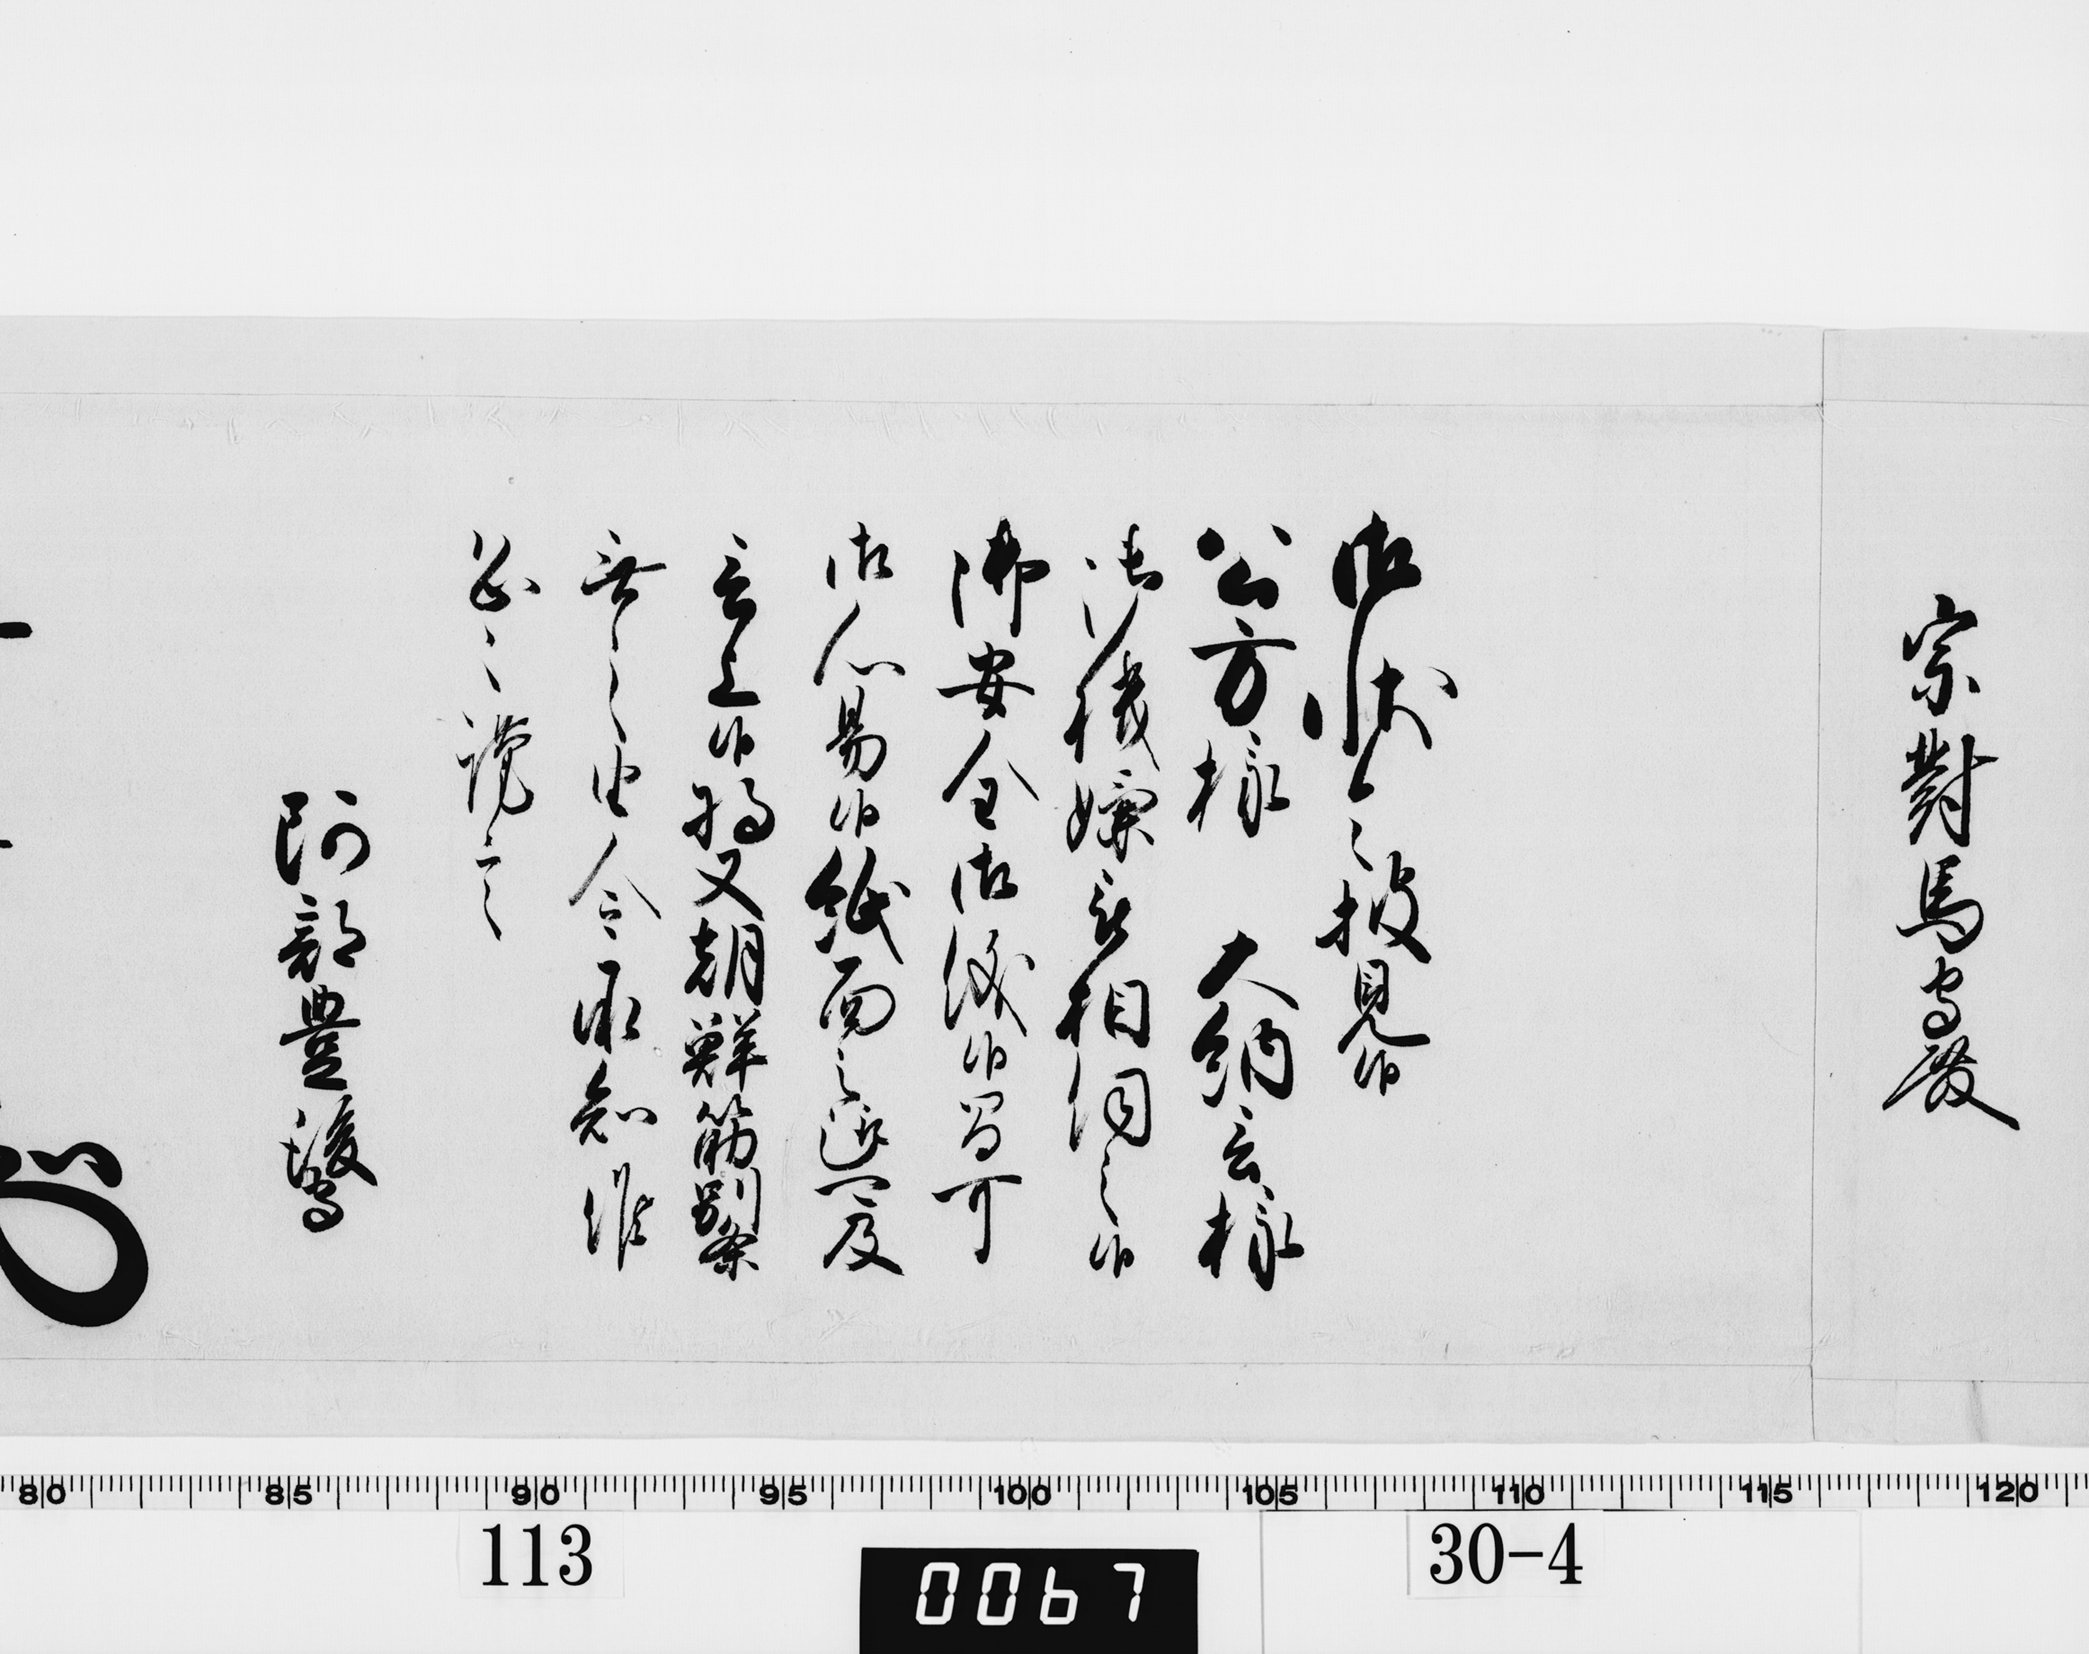 宗對馬守殿
御状令披見候
公方様 大納言様
御機嫌被相伺之候
御安全御儀候間可
御心易候紙面之趣一覧及
言上候将又朝鮮筋別条
無之由令承知候
恐々謹言
阿部豊後守
80 85 90 95 100 105 110 115 120
113
0067
30-4